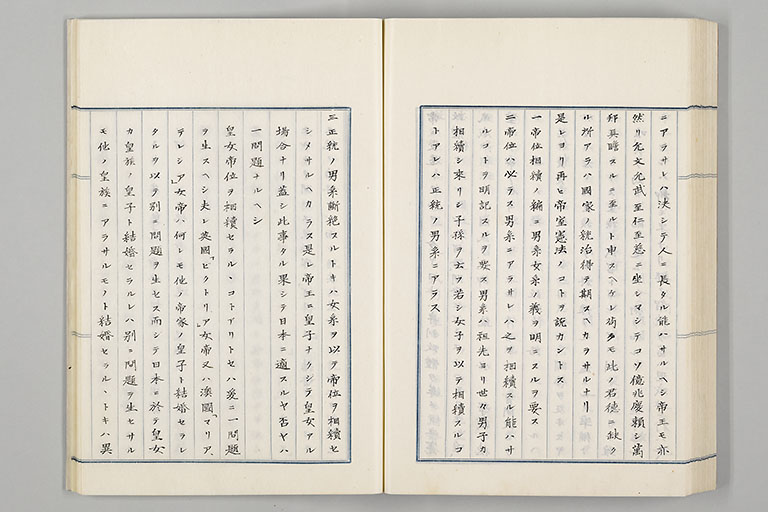 ニアラサレハ決シテ人ニ長タル能ハサルヘシ帝王モ亦
然リ允文允武至仁至慈ニ坐シマシテコソ億兆慶頼シ萬
邦具瞻スルニ至ルト申スヘケレ尚クモ此ノ君徳ニ缺ク
ル所アラハ國家ノ統治得テ期スヘカラサルナリ
是レヨリ再ヒ帝室憲法ノコトヲ説カントス
一帝位相續ノ編ニ男系女系ノ義ヲ明ニスルヲ要ス
二帝位ハ必ラス男系ニアラサレハ之ヲ相續スル能ハサ
ルコトヲ明記スルヲ要ス男系ハ祖先ヨリ世々男子カ
相續シ来リシ子孫ヲ云フ若シ女子ヲ以テ相續スルコ
トアレハ正統ノ男系ニアラス
三正統ノ男系斷絶スルトキハ女系ヲ以テ帝位ヲ相續セ
シメサルヘカラス是レ帝王ニ皇子ナクシテ皇女アル
場合ナリ蓋シ此事タル果シテ日本ニ適スルヤ否ヤハ
一問題ナルヘシ
皇女帝位ヲ相續セラルヽコトアリトセハ爰ニ一問題
ヲ生スヘシ夫レ英國「ビクトリア」女帝又ハ澳國「マリア、
テレシア」女帝ハ何レモ他ノ帝家ノ皇子ト結婚セラレ
タルヲ以テ別ニ問題ヲ生セス而シテ日本ニ於テ皇女
カ皇族ノ皇子ト結婚セラルレハ別ニ問題ヲ生セサル
モ他ノ皇族ニアラサルモノト結婚セラルヽトキハ異